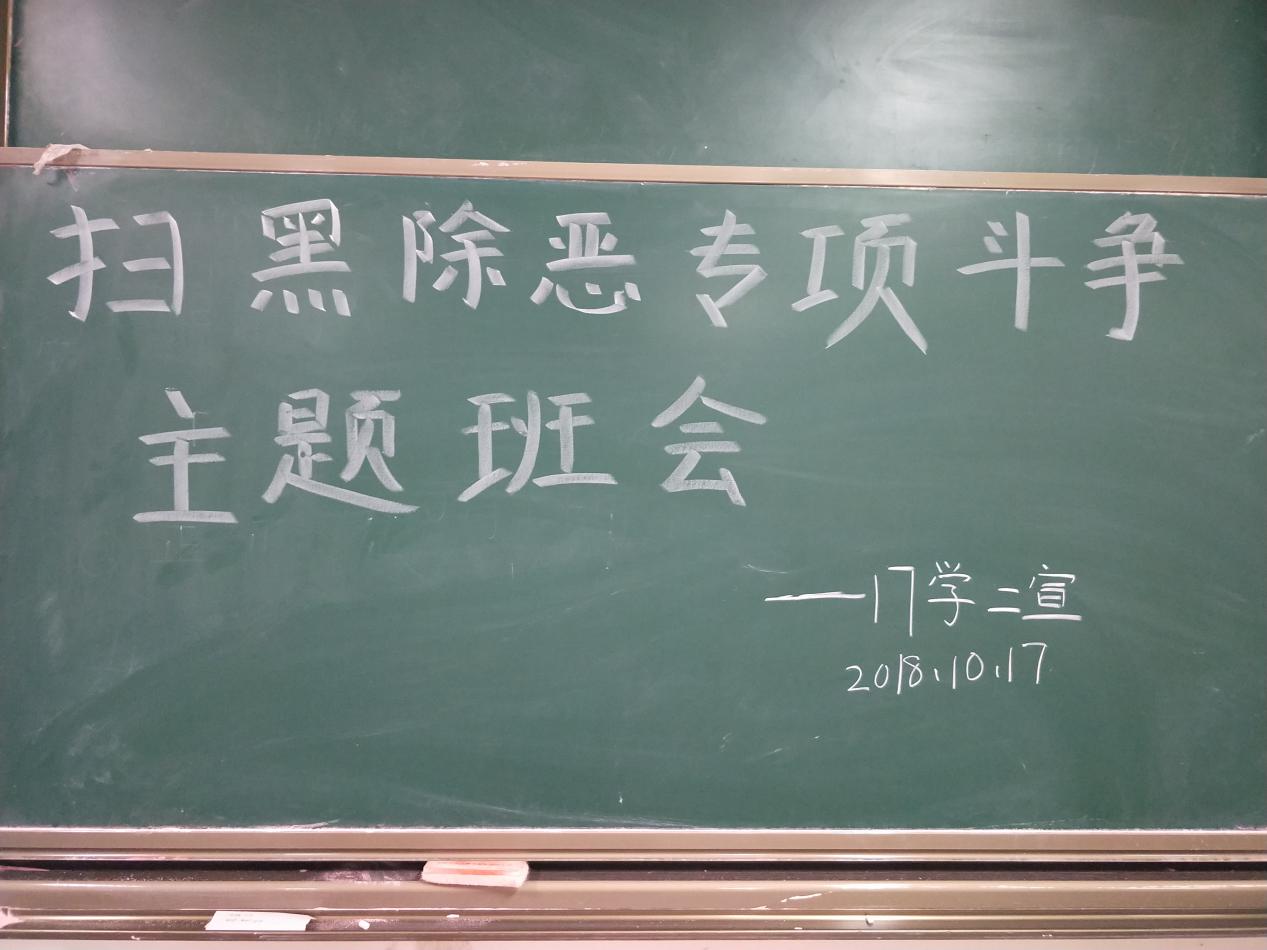 扫黑除恶专项斗争
主题班会
——17学二宣
2018.10.17